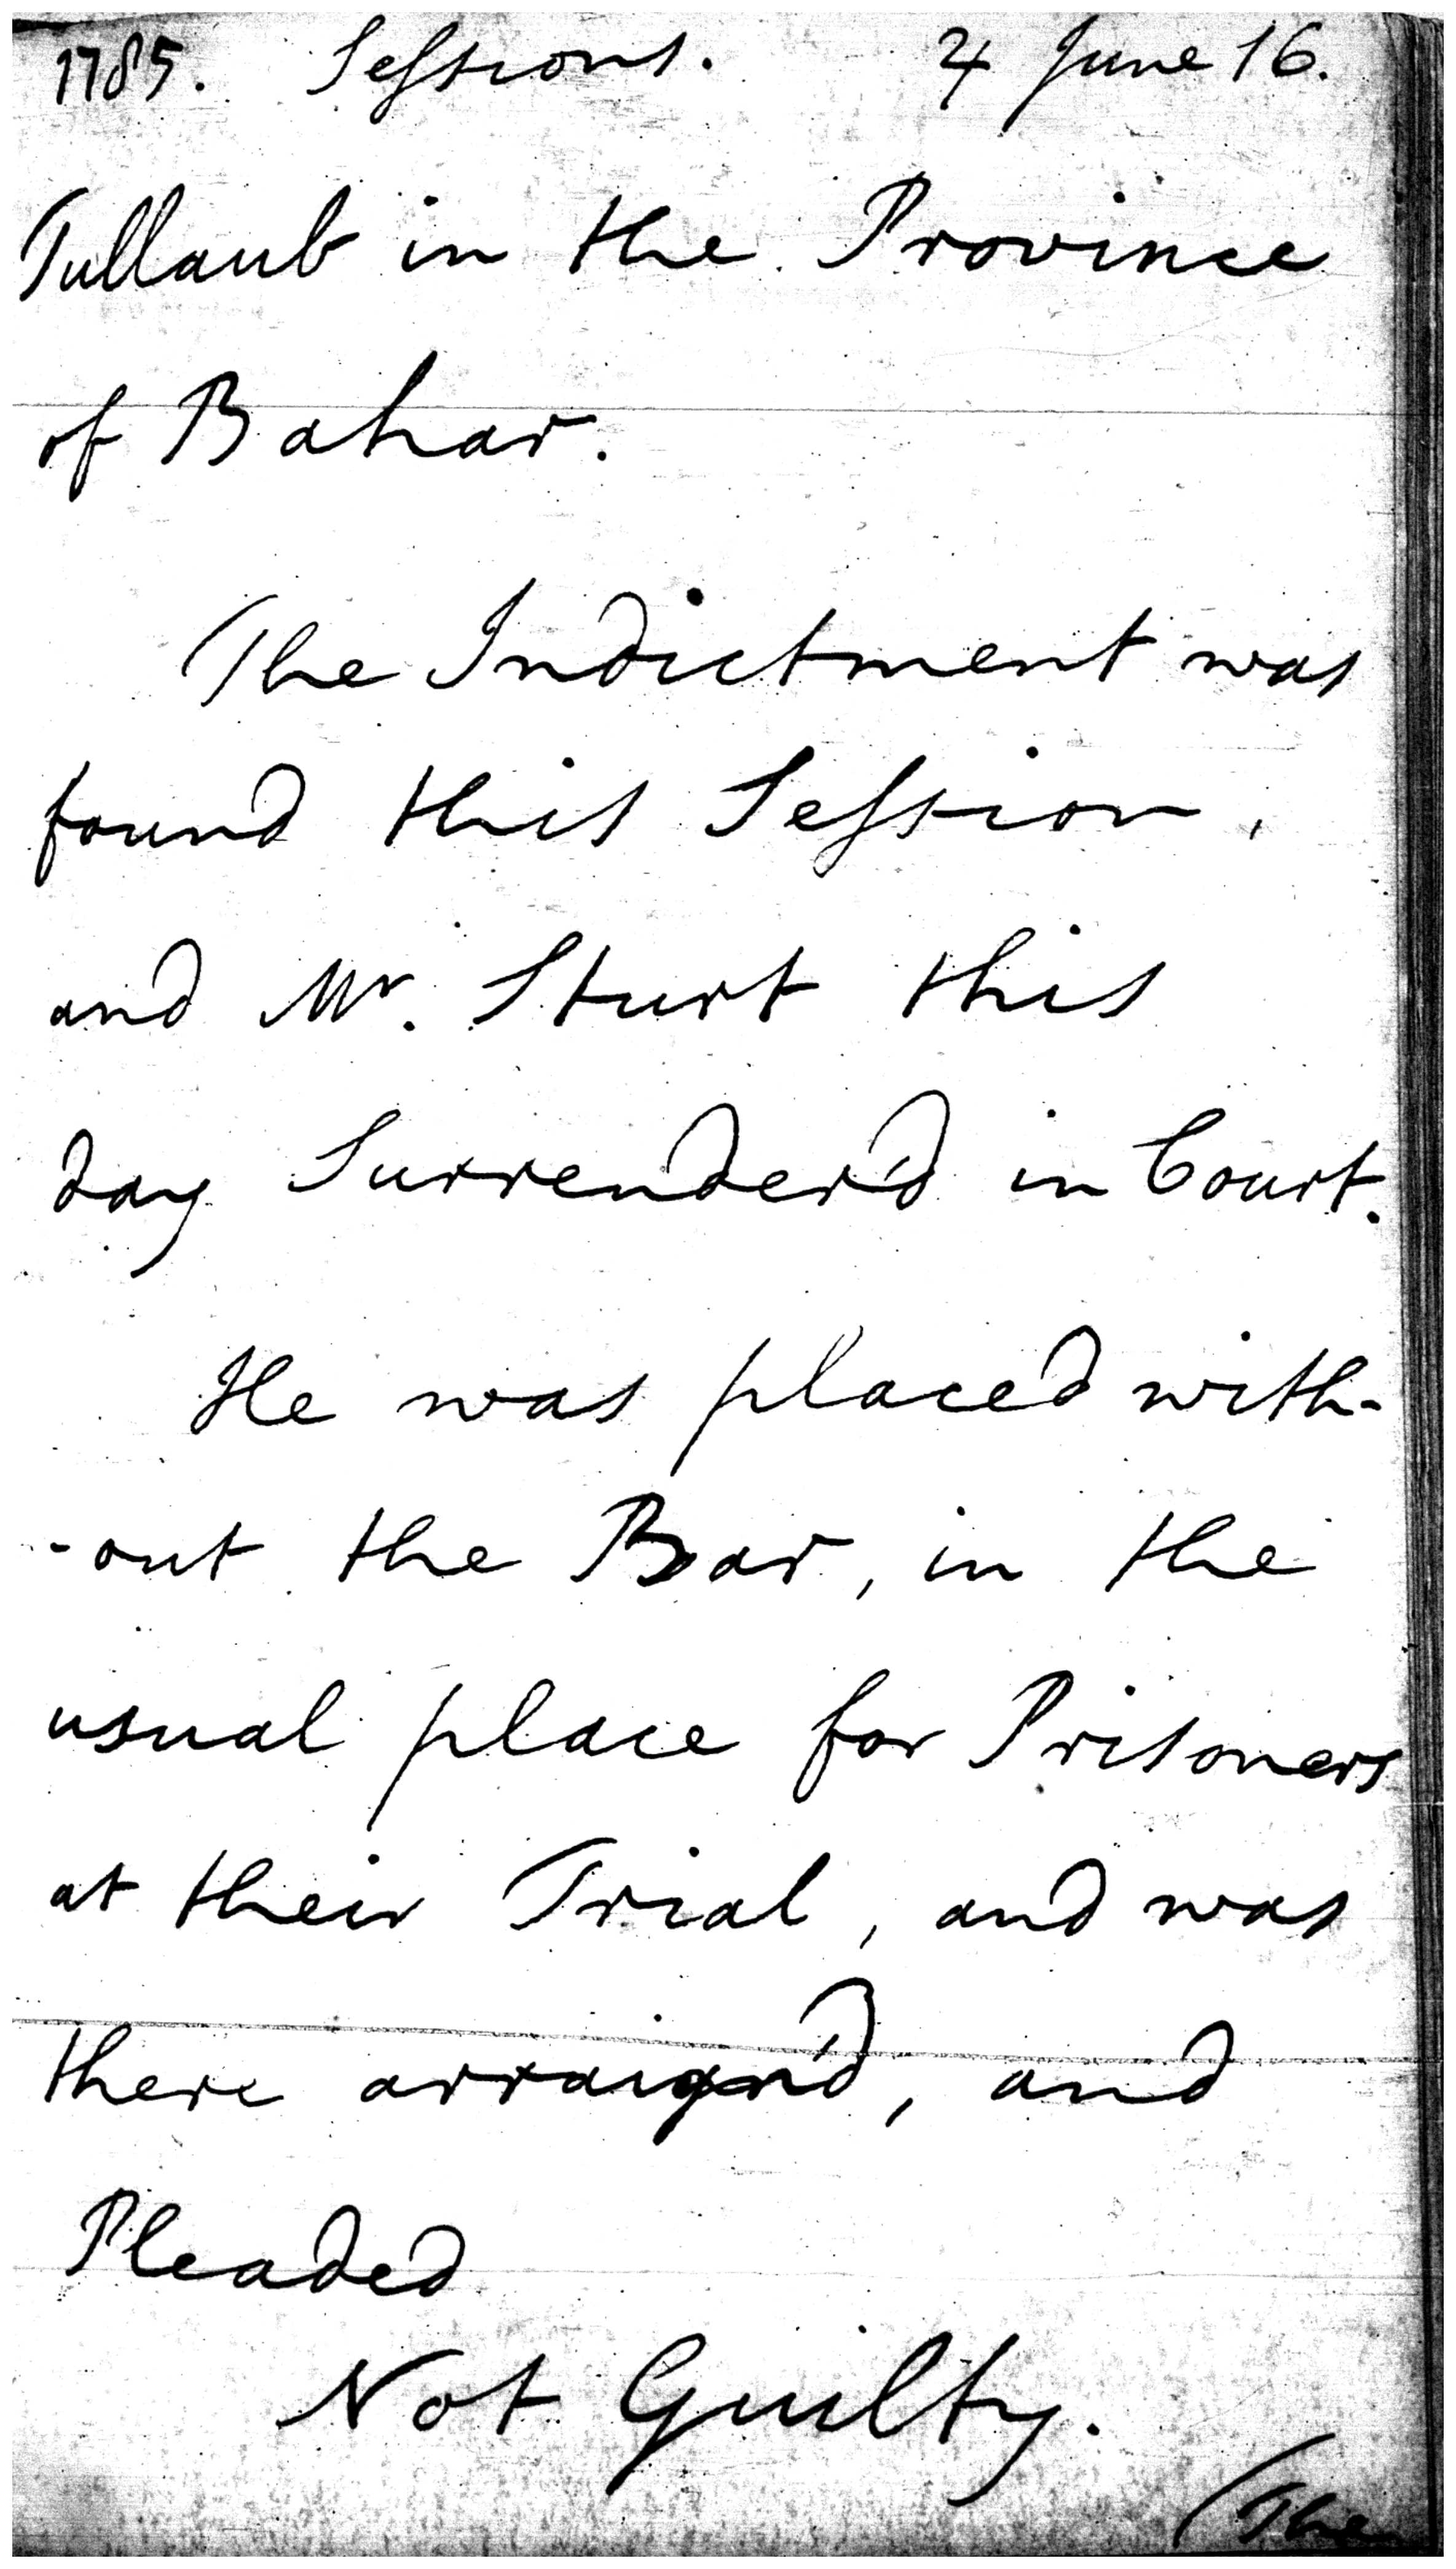 1785. Seſsions. ♃ June 16.
Tullaub in the Province
of Bahar.
The Indictment was
found this Seſsion,
and Mr. Sturt this
day Surrender'd in Court.
He was placed with-
-out the Bar, in the
usual place for Prisoners
at their Trial, and was
there arraign'd, and
Pleaded
Not Guilty.
(The